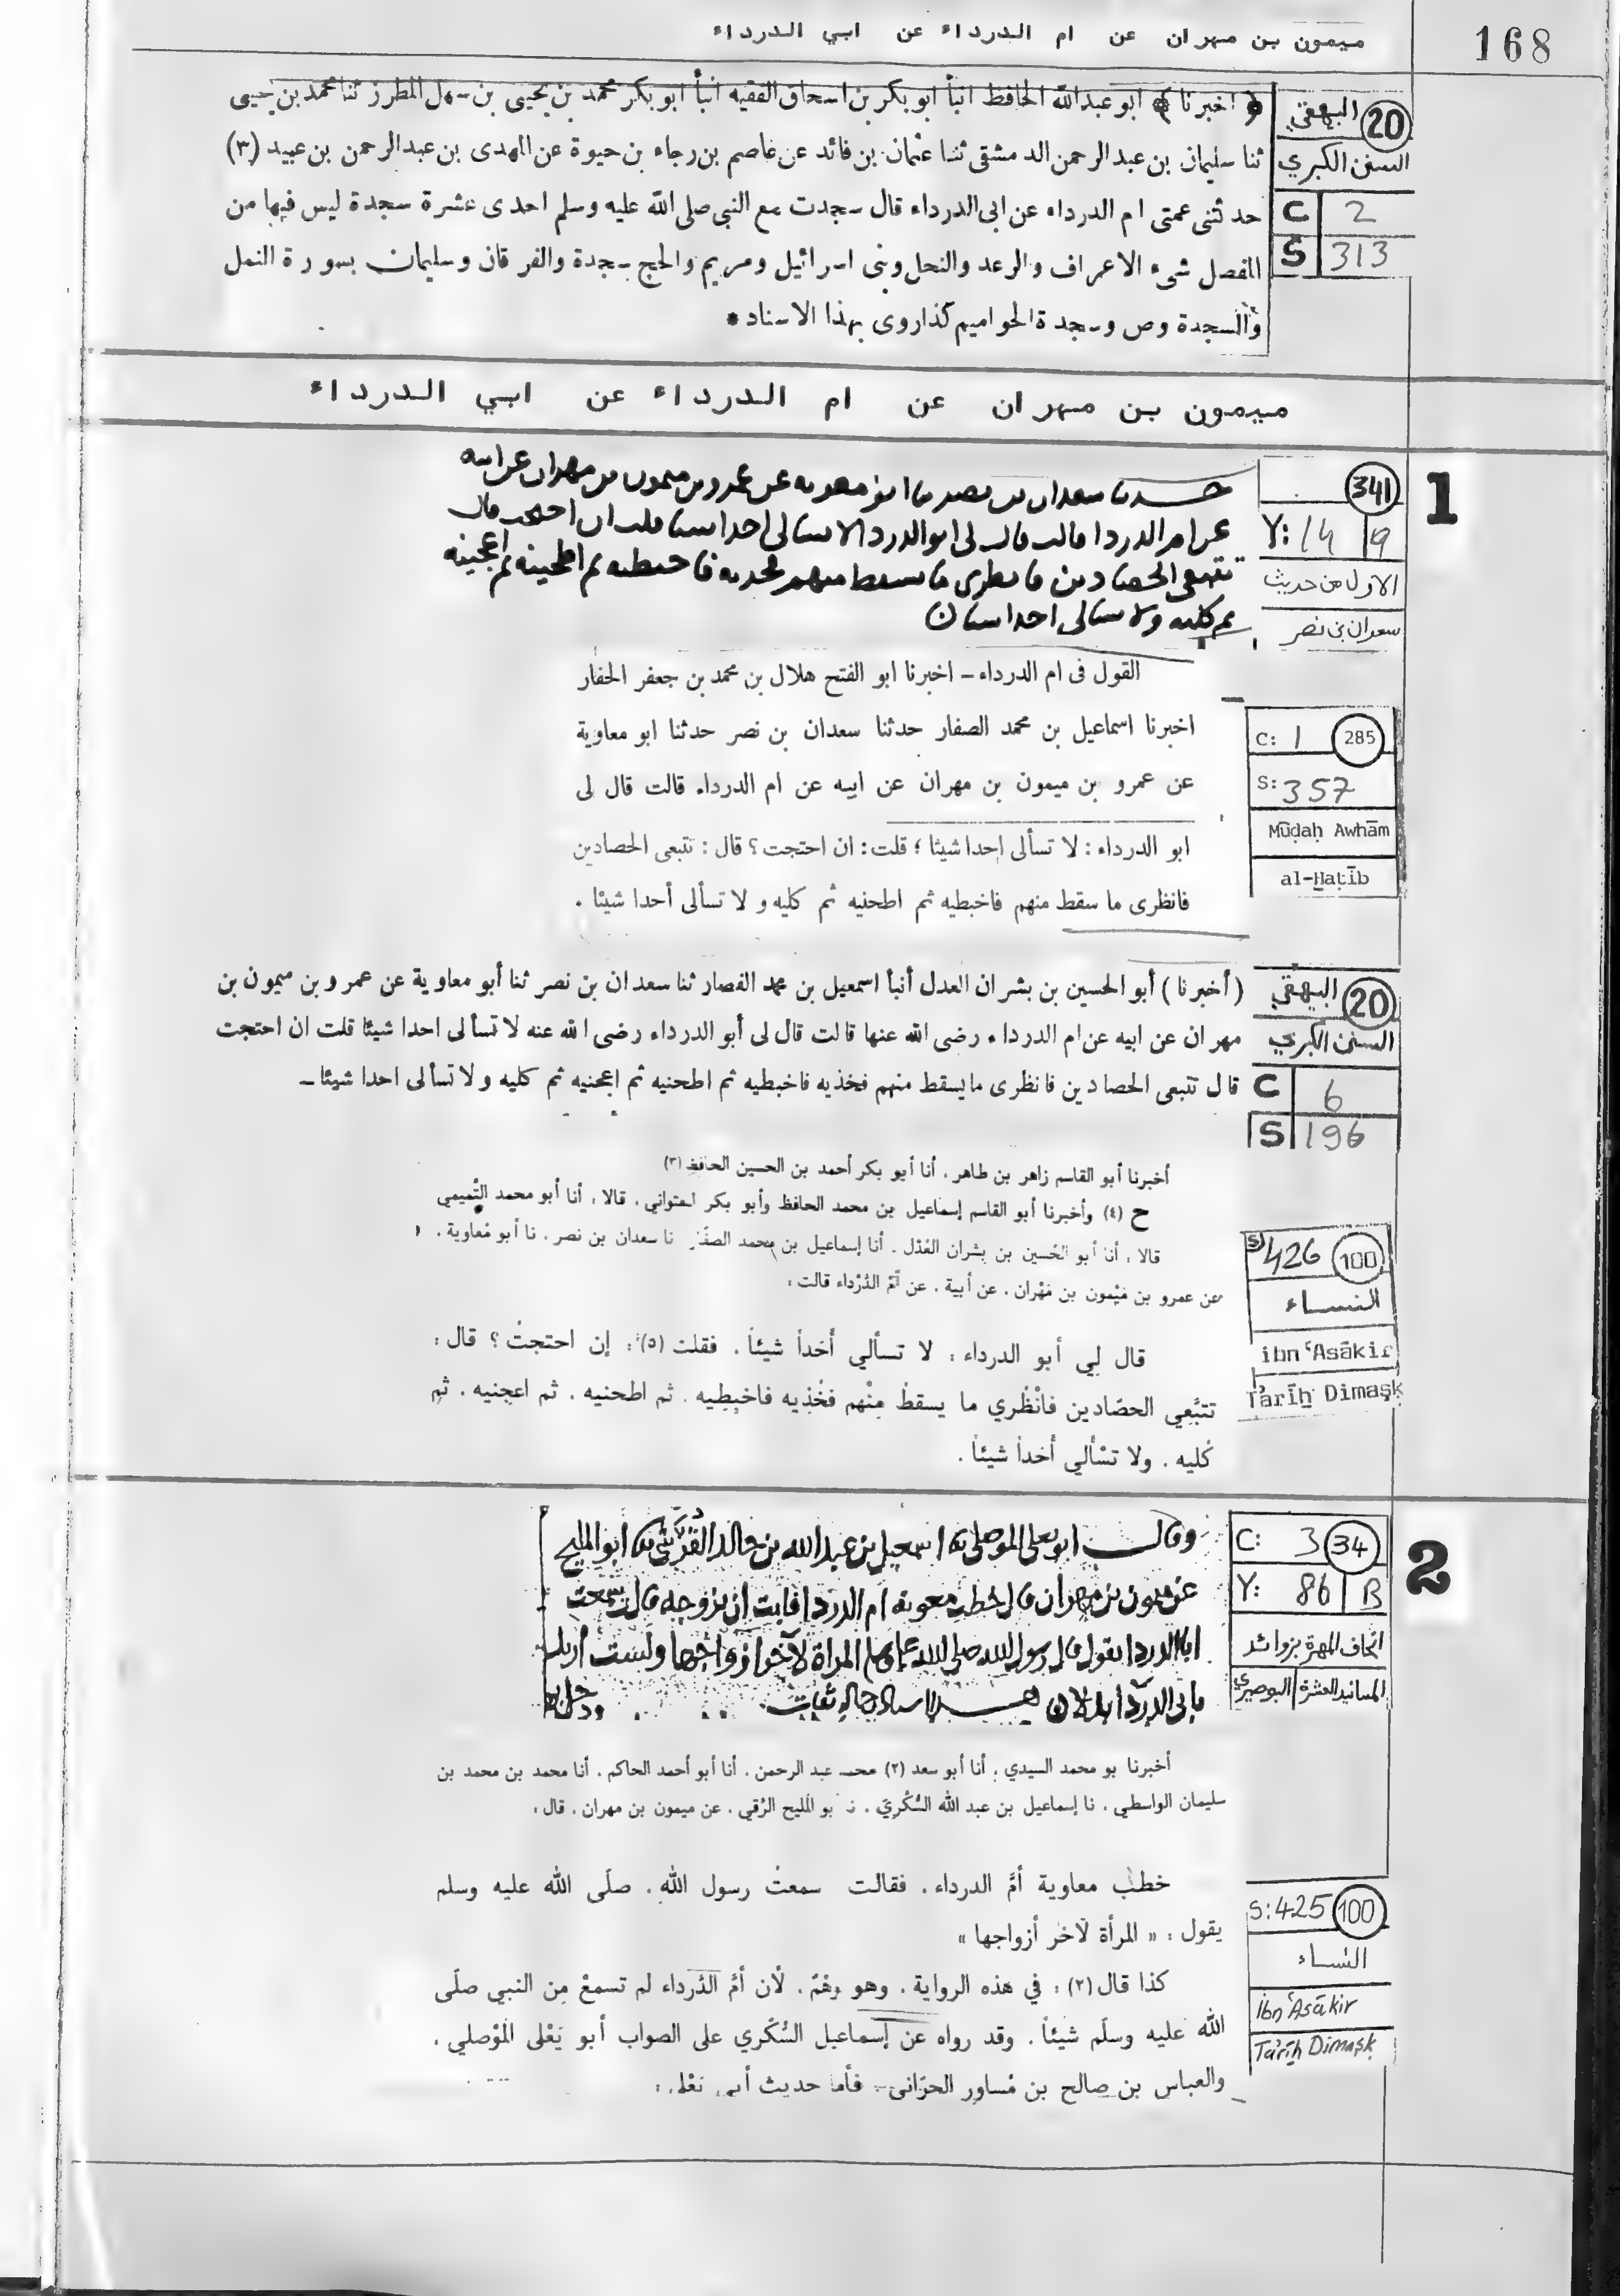 168
ميمون بن مهران عن ام الدرداء عن ابي الدرداء
20 البيهقي
السنن الكبري
C 2
S 313
﴿ اخبرنا ﴾ ابو عبدالله الحافظ انبأ ابو بكر بن اسحاق الفقيه انبأ ابو بكر محمد بن يحيى بن سهل المطرز ثنا محمد بن يحيى
ثنا سليمان بن عبد الرحمن الدمشقى ثنا عثمان بن فائد عن عاصم بن رجاء بن حيوة عن المهدى بن عبد الرحمن بن عبيد (٣)
حدثنى عمتى ام الدرداء عن ابى الدرداء قال سجدت مع النبى صلى الله عليه وسلم احدى عشرة سجدة ليس فيها من
المفصل شىء الاعراف والرعد والنحل وبنى اسرائيل ومريم والحج سجدة والفرقان وسليمان بسورة النمل
والسجدة وص وسجدة الحواميم كذا روى بهذا الاسناد *
ميمون بن مهران عن ام الدرداء عن ابي الدرداء
1
341
Y: 14 | 9
الاول من حديث
سعدان بن نصر
حدثنا سعدان بن نصر نا ابو معويه عن عمرو بن ميمون بن مهران عن ابيه
عن ام الدردا قالت قال لى ابو الدردا لا تسالى احدا شيا قلت ان احتجت قال
تتبعى الحصادين فانظرى ما يسقط منهم فخذيه فاخبطيه ثم اطحنيه ثم اعجنيه
ثم كليه ولا تسالى احدا شيا
C: 1 285
S: 357
Mūḍaḥ Awhām
al-Ḫaṭīb
القول فى ام الدرداء – اخبرنا ابو الفتح هلال بن محمد بن جعفر الحفار
اخبرنا اسماعيل بن محمد الصفار حدثنا سعدان بن نصر حدثنا ابو معاوية
عن عمرو بن ميمون بن مهران عن ابيه عن ام الدرداء قالت قال لى
ابو الدرداء : لا تسألى احدا شيئا ؛ قلت : ان احتجت ؟ قال : تتبعى الحصادين
فانظرى ما سقط منهم فاخبطيه ثم اطحنيه ثم كليه و لا تسألى أحدا شيئا .
20 البيهقي
السنن الكبري
C 6
S 196
( أخبرنا ) أبو الحسين بن بشران العدل أنبأ اسمعيل بن محمد الصفار ثنا سعدان بن نصر ثنا أبو معاوية عن عمرو بن ميمون بن
مهران عن ابيه عن ام الدرداء رضى الله عنها قالت قال لى أبو الدرداء رضى الله عنه لا تسألى احدا شيئا قلت ان احتجت
قال تتبعى الحصادين فانظرى ما يسقط منهم فخذيه فاخبطيه ثم اطحنيه ثم اعجنيه ثم كليه ولا تسألى احدا شيئا –
S 426 100
النساء
ibn ʿAsākir
Tārīḫ Dimaşḳ
أخبرنا أبو القاسم زاهر بن طاهر ، أنا أبو بكر أحمد بن الحسين الحافظ (٣)
ح (٤) وأخبرنا أبو القاسم إسماعيل بن محمد الحافظ وأبو بكر اللفتواني ، قالا ، أنا أبو محمد التميمي
قالا ، أنا أبو الحسين بن بشران العَدْل ، أنا إسماعيل بن محمد الصفّار نا سعدان بن نصر ، نا أبو مُعاوية ،
عن عمرو بن مَيْمون بن مَهْران ، عن أبيه ، عن أمّ الدَّرْداء قالت :
قال لي أبو الدرداء : لا تسألي أحداً شيئاً . فقلت (٥) : إن احتجتُ ؟ قال :
تتبَّعي الحصّادين فانْظُري ما يسقطُ مِنْهم فخُذِيه فاخبِطِيه . ثم اطحنيه . ثم اعجِنيه . ثم
كُليه . ولا تسْألي أحداً شيئاً .
2
C: 3 34
Y: 86 | B
اتحاف المهرة بزوائد
المسانيد العشرة | البوصيري
وقال ابو يعلى الموصلى ثنا اسمعيل بن عبد الله بن خالد القرشى ثنا ابو المليح
عن ميمون بن مهران قال خطب معوية ام الدردا فابت ان تزوجه قالت سمعت
ابا الدردا يقول قال رسول الله صلى الله عليه وسلم المراة لآخر ازواجها ولست اريد
بابى الدردا بدلا هذا اسناد رجاله ثقات
S: 425 100
النساء
Ibn ʿAsākir
Tārīḫ Dimaşḳ
أخبرنا بو محمد السيدي ، أنا أبو سعد (٢) محمد عبد الرحمن ، أنا أبو أحمد الحاكم ، أنا محمد بن محمد بن
سليمان الواسطي ، نا إسماعيل بن عبد الله السُّكَّريّ ، نا بو المليح الرَّقي ، عن ميمون بن مهران ، قال :
خطب معاوية أمَّ الدرداء ، فقالت سمعتُ رسول الله ، صلّى الله عليه وسلم
يقول : « المرأة لآخر أزواجها »
كذا قال (٢) : في هذه الرواية ، وهو وهْمٌ ، لأن أمَّ الدَّرداء لم تسمعْ مِن النبي صلّى
الله عليه وسلّم شيئاً . وقد رواه عن إسماعيل السُّكّري على الصواب أبو يَعْلى المَوْصلي ،
والعباس بن صالح بن مُساور الحرّاني ، فأما حديث أبي يَعْلى :